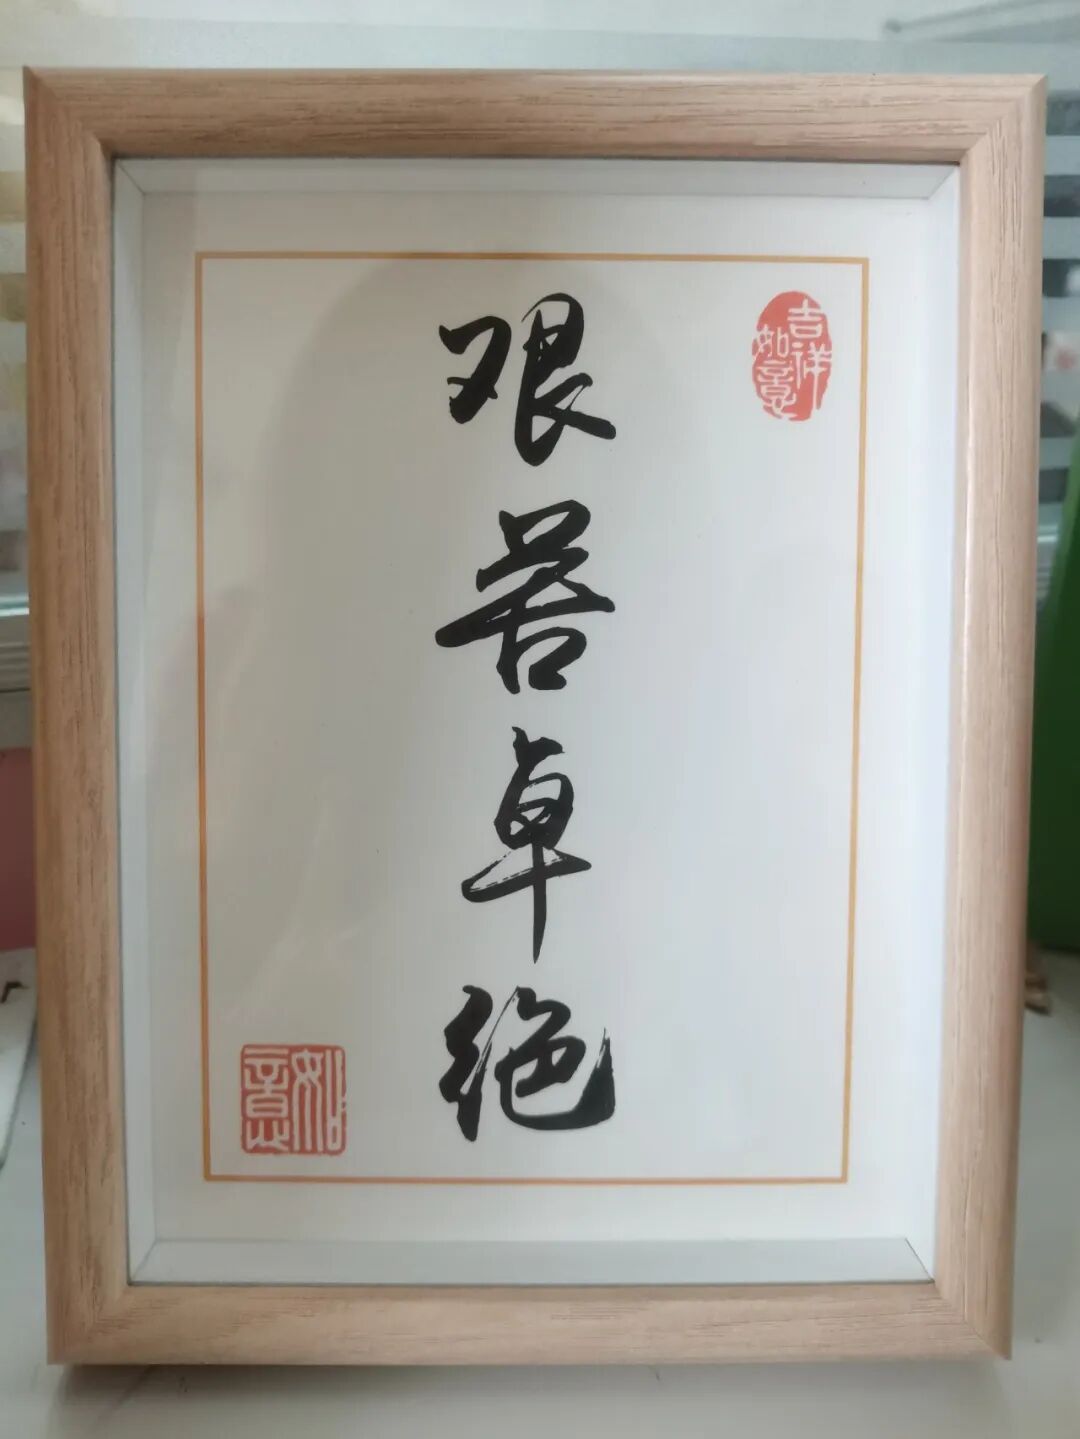 吉祥
如意
艰苦卓绝
如意